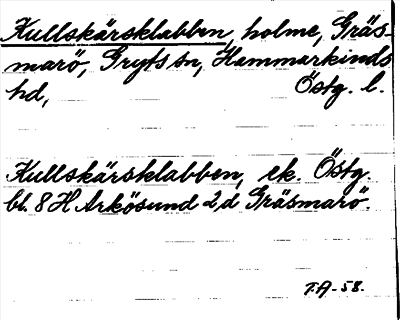 Kullskärsklabben, holme, Gräs-
marö, Gryts sn, Hammarkinds
hd, Östg. l.
Kullskärsklabben, ek. Östg.
bl. 8 H Arkösund 2,d Gräsmarö.
T.A-58.